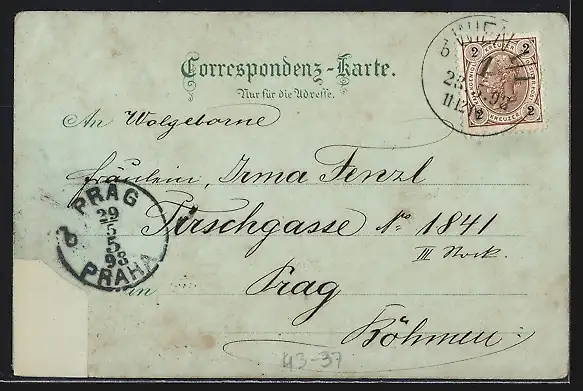 Correspondenz-Karte.
Nur für die Adresse.
An Wolgeborne
fräulein, Irma Fenzl
Pirschgasse No 1841
III Stock.
in Prag
Böhmen
WIEN
2 2
KREUZER
2 2
PRAG
29
5
5
98
PRAHA
2
43-37